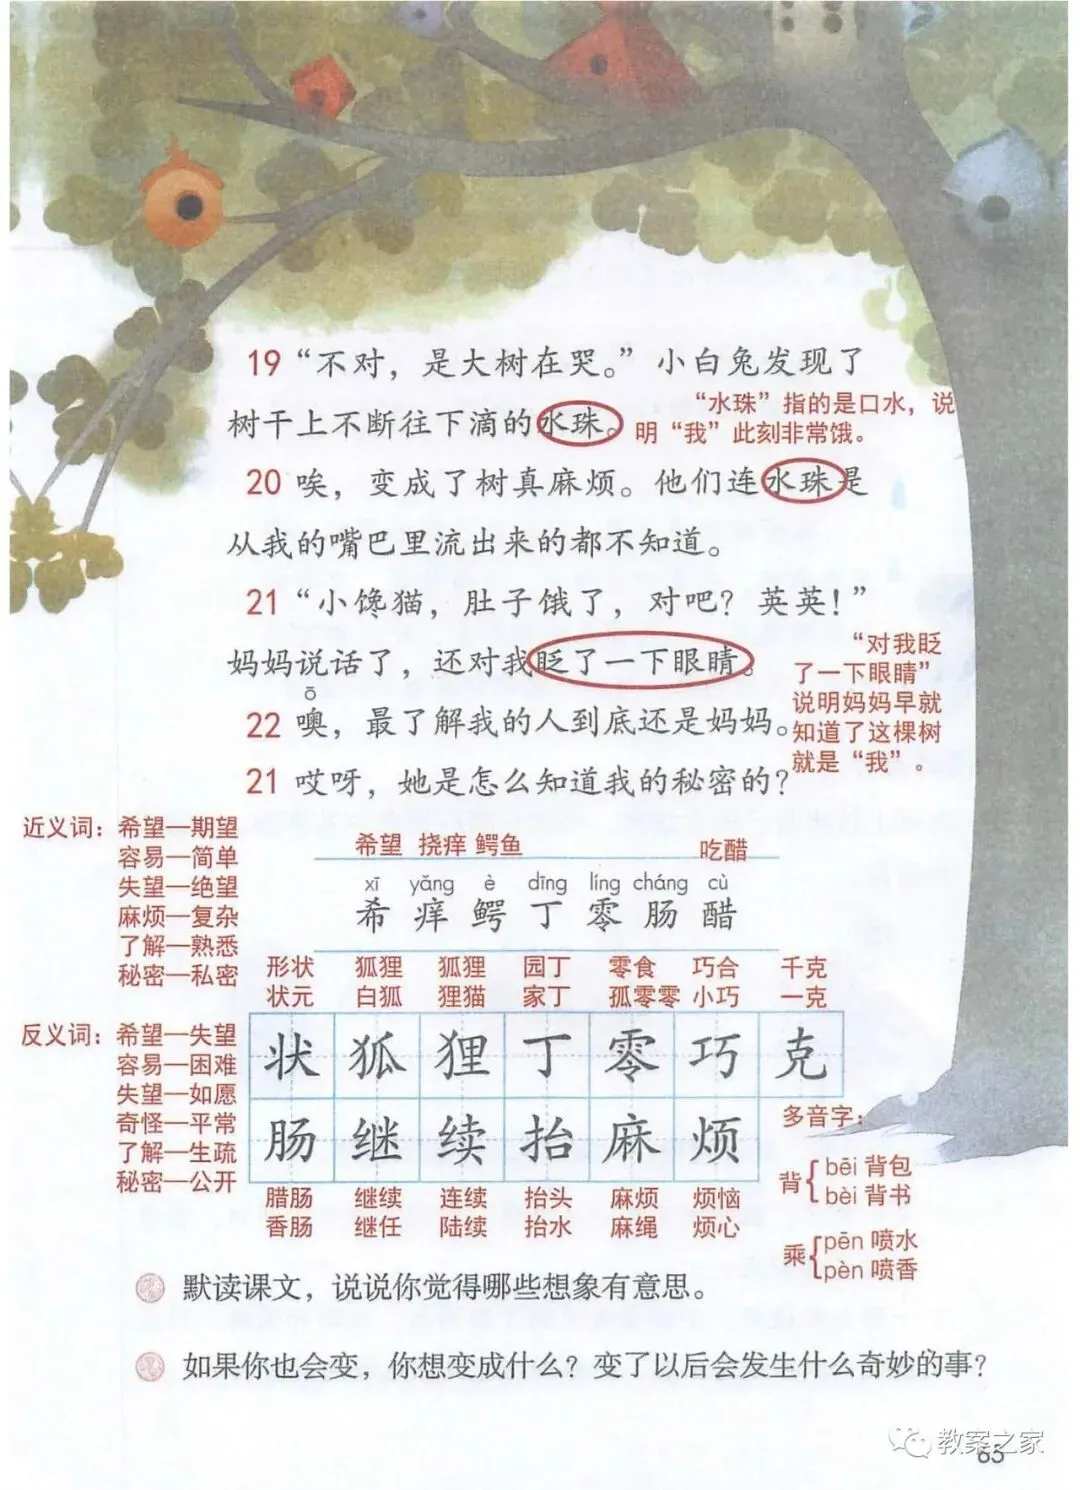 19 “不对，是大树在哭。”小白兔发现了
树干上不断往下滴的水珠。
“水珠”指的是口水，说
明“我”此刻非常饿。
20 唉，变成了树真麻烦。他们连水珠是
从我的嘴巴里流出来的都不知道。
21 “小馋猫，肚子饿了，对吧？英英！”
妈妈说话了，还对我眨了一下眼睛。
“对我眨
了一下眼睛”
说明妈妈早就
知道了这棵树
就是“我”。
ō
22 噢，最了解我的人到底还是妈妈。
21 哎呀，她是怎么知道我的秘密的？
近义词：希望—期望
容易—简单
失望—绝望
麻烦—复杂
了解—熟悉
秘密—私密
希望 挠痒 鳄鱼 吃醋
xī yǎng è dīng líng cháng cù
希 痒 鳄 丁 零 肠 醋
形状 狐狸 狐狸 园丁 零食 巧合 千克
状元 白狐 狸猫 家丁 孤零零 小巧 一克
反义词：希望—失望
容易—困难
失望—如愿
奇怪—平常
了解—生疏
秘密—公开
状 狐 狸 丁 零 巧 克
肠 继 续 抬 麻 烦
腊肠 继续 连续 抬头 麻烦 烦恼
香肠 继任 陆续 抬水 麻绳 烦心
多音字：
背 bēi 背包
bèi 背书
乘 pēn 喷水
pèn 喷香
默读课文，说说你觉得哪些想象有意思。
如果你也会变，你想变成什么？变了以后会发生什么奇妙的事？
教案之家
65